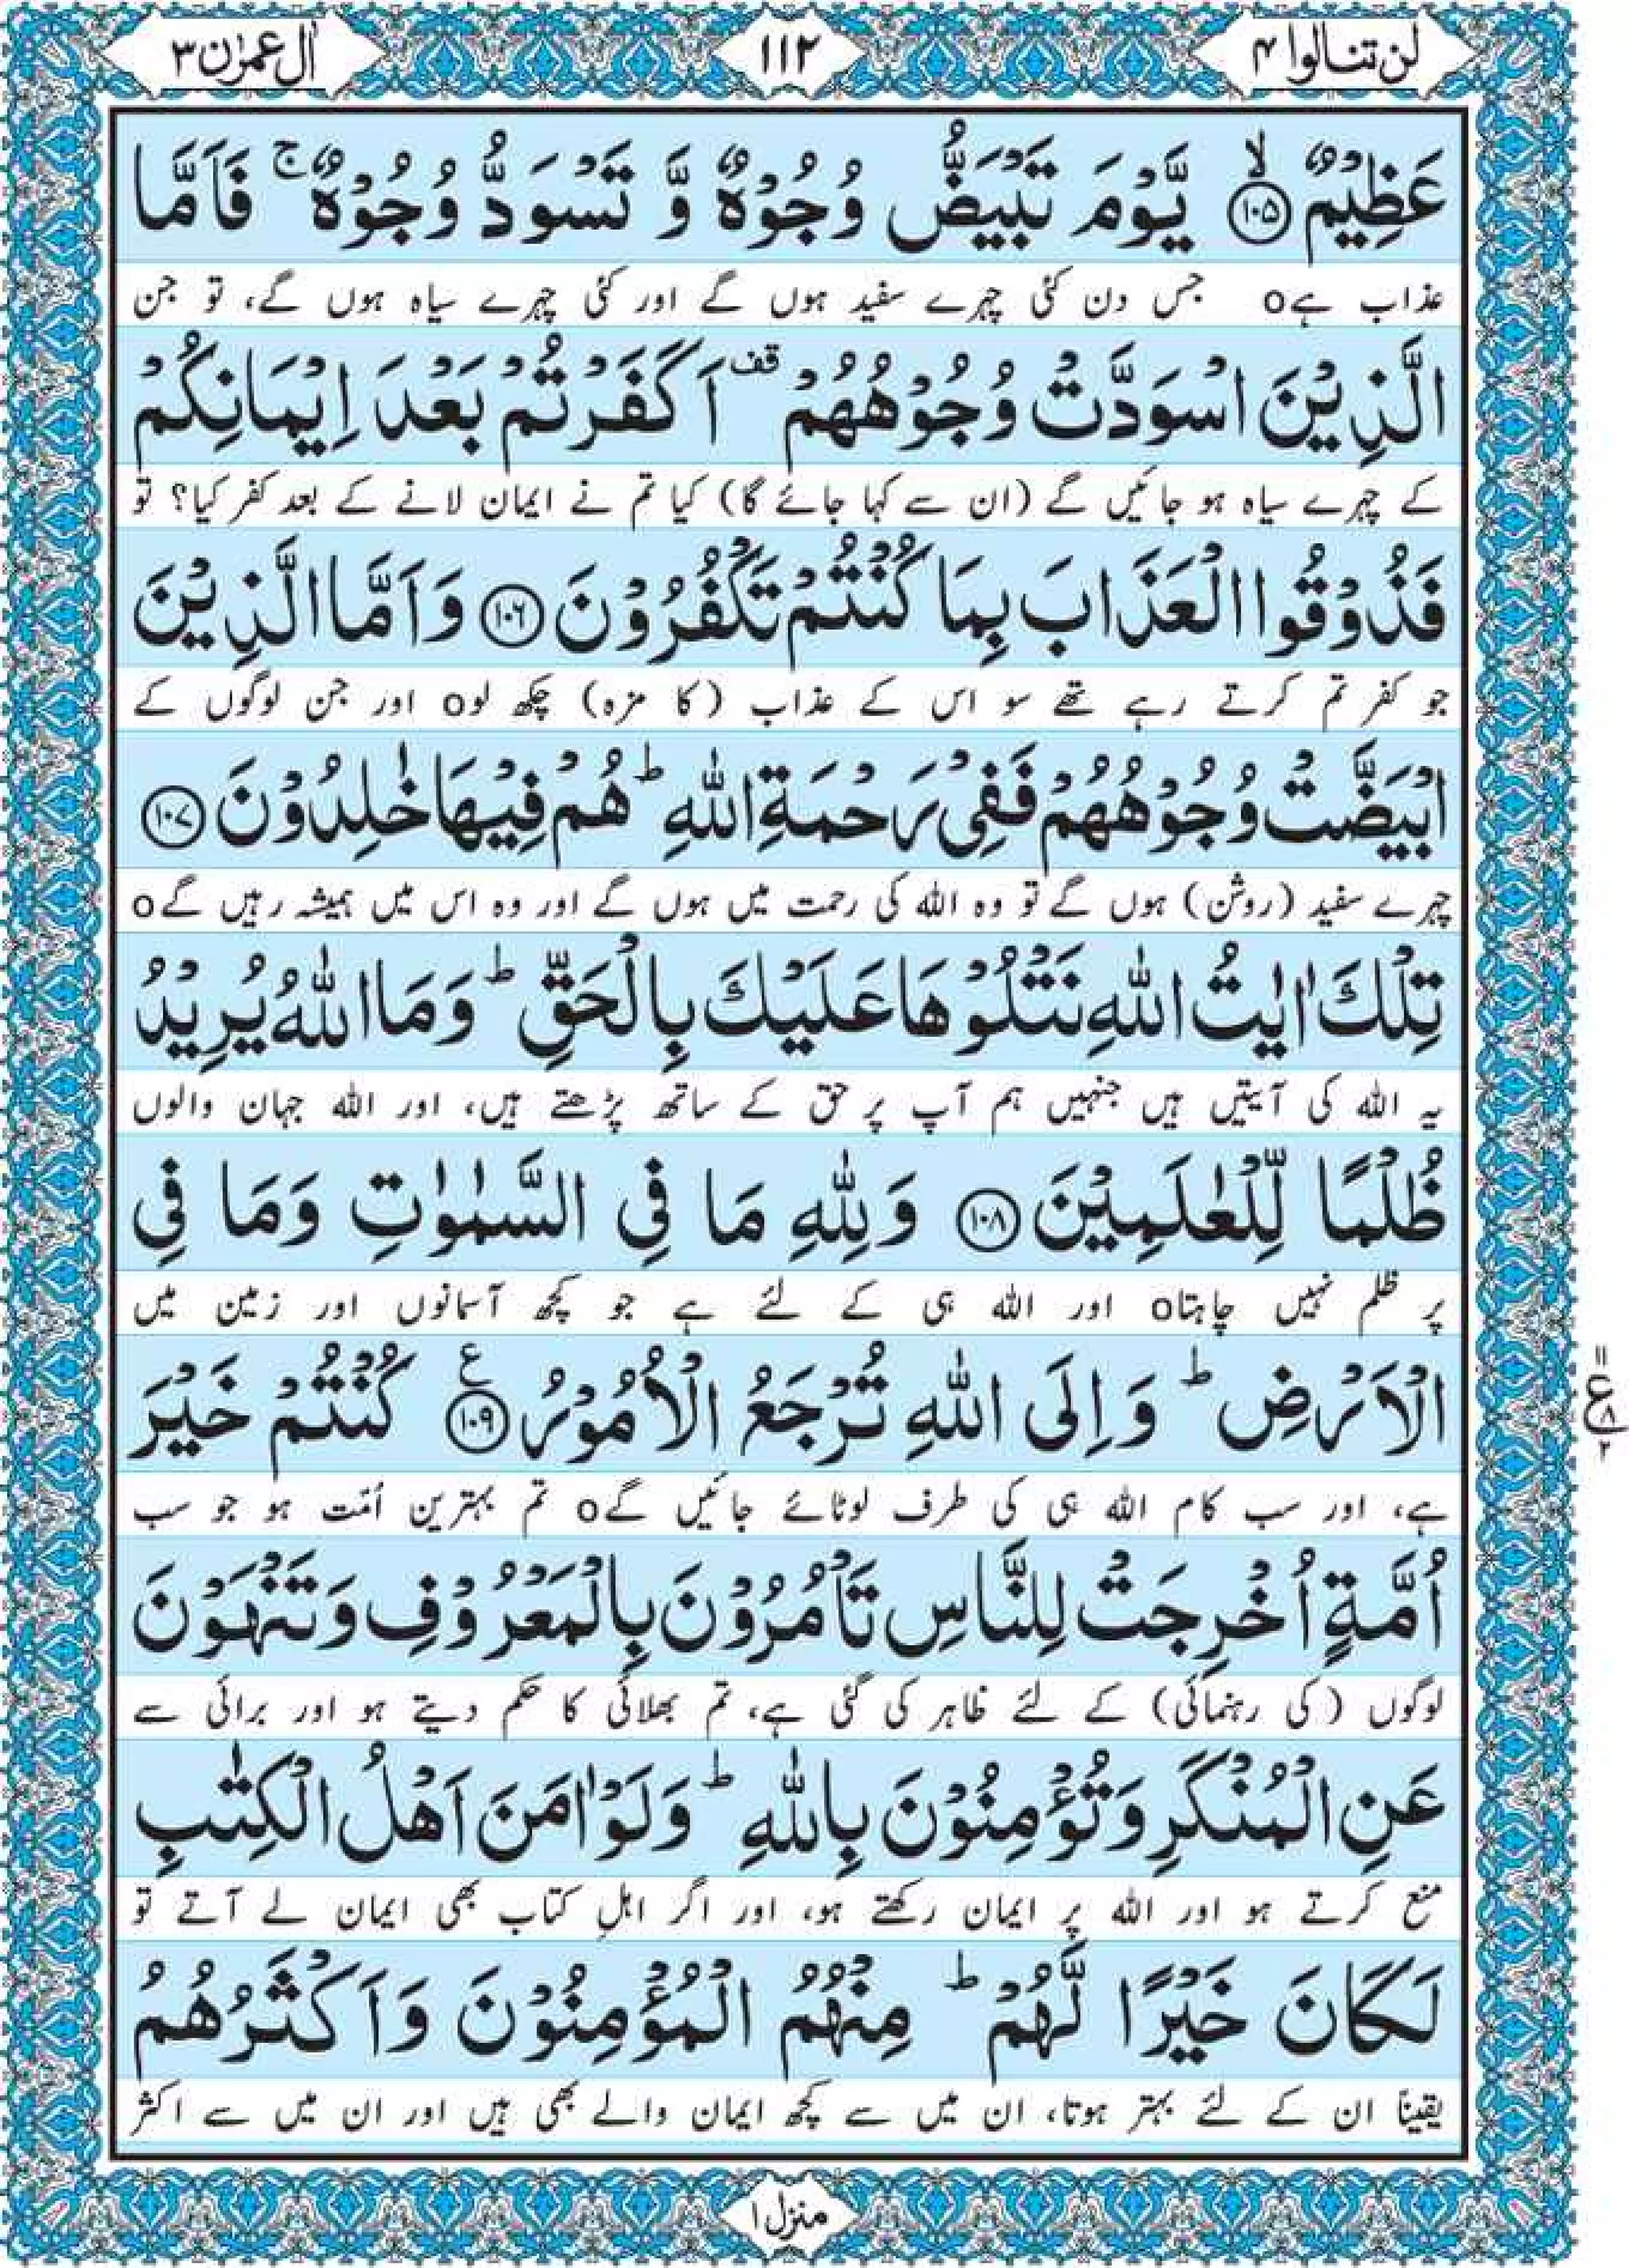 لن تنالوا ۴
۱۱۲
اٰل عمرٰن ۳
عَظِیْمٌ ﴿۱۰۵﴾ۙ یَّوْمَ تَبْیَضُّ وُجُوْهٌ وَّ تَسْوَدُّ وُجُوْهٌ ۚ فَاَمَّا
عذاب ہےo جس دن کئی چہرے سفید ہوں گے اور کئی چہرے سیاہ ہوں گے، تو جن
الَّذِیْنَ اسْوَدَّتْ وُجُوْهُهُمْ قف اَكَفَرْتُمْ بَعْدَ اِیْمَانِكُمْ
کے چہرے سیاہ ہو جائیں گے (ان سے کہا جائے گا) کیا تم نے ایمان لانے کے بعد کفر کیا؟ تو
فَذُوْقُوا الْعَذَابَ بِمَا كُنْتُمْ تَكْفُرُوْنَ ﴿۱۰۶﴾ وَ اَمَّا الَّذِیْنَ
جو کفر تم کرتے رہے تھے سو اس کے عذاب (کا مزہ) چکھ لوo اور جن لوگوں کے
ابْیَضَّتْ وُجُوْهُهُمْ فَفِیْ رَحْمَةِ اللّٰهِ ؕ هُمْ فِیْهَا خٰلِدُوْنَ ﴿۱۰۷﴾
چہرے سفید (روشن) ہوں گے تو وہ اللہ کی رحمت میں ہوں گے اور وہ اس میں ہمیشہ رہیں گےo
تِلْكَ اٰیٰتُ اللّٰهِ نَتْلُوْهَا عَلَیْكَ بِالْحَقِّ ؕ وَ مَا اللّٰهُ یُرِیْدُ
یہ اللہ کی آیتیں ہیں جنہیں ہم آپ پر حق کے ساتھ پڑھتے ہیں، اور اللہ جہان والوں
ظُلْمًا لِّلْعٰلَمِیْنَ ﴿۱۰۸﴾ وَ لِلّٰهِ مَا فِی السَّمٰوٰتِ وَ مَا فِی
پر ظلم نہیں چاہتاo اور اللہ ہی کے لئے ہے جو کچھ آسمانوں اور زمین میں
الْاَرْضِ ؕ وَ اِلَی اللّٰهِ تُرْجَعُ الْاُمُوْرُ ﴿۱۰۹﴾ ع كُنْتُمْ خَیْرَ
۱۱ ع ۸ ۲
ہے، اور سب کام اللہ ہی کی طرف لوٹائے جائیں گےo تم بہترین اُمّت ہو جو سب
اُمَّةٍ اُخْرِجَتْ لِلنَّاسِ تَاْمُرُوْنَ بِالْمَعْرُوْفِ وَ تَنْهَوْنَ
لوگوں (کی رہنمائی) کے لئے ظاہر کی گئی ہے، تم بھلائی کا حکم دیتے ہو اور برائی سے
عَنِ الْمُنْكَرِ وَ تُؤْمِنُوْنَ بِاللّٰهِ ؕ وَ لَوْ اٰمَنَ اَهْلُ الْكِتٰبِ
منع کرتے ہو اور اللہ پر ایمان رکھتے ہو، اور اگر اہلِ کتاب بھی ایمان لے آتے تو
لَكَانَ خَیْرًا لَّهُمْ ؕ مِنْهُمُ الْمُؤْمِنُوْنَ وَ اَكْثَرُهُمُ
یقیناً ان کے لئے بہتر ہوتا، ان میں سے کچھ ایمان والے بھی ہیں اور ان میں سے اکثر
منزل ۱